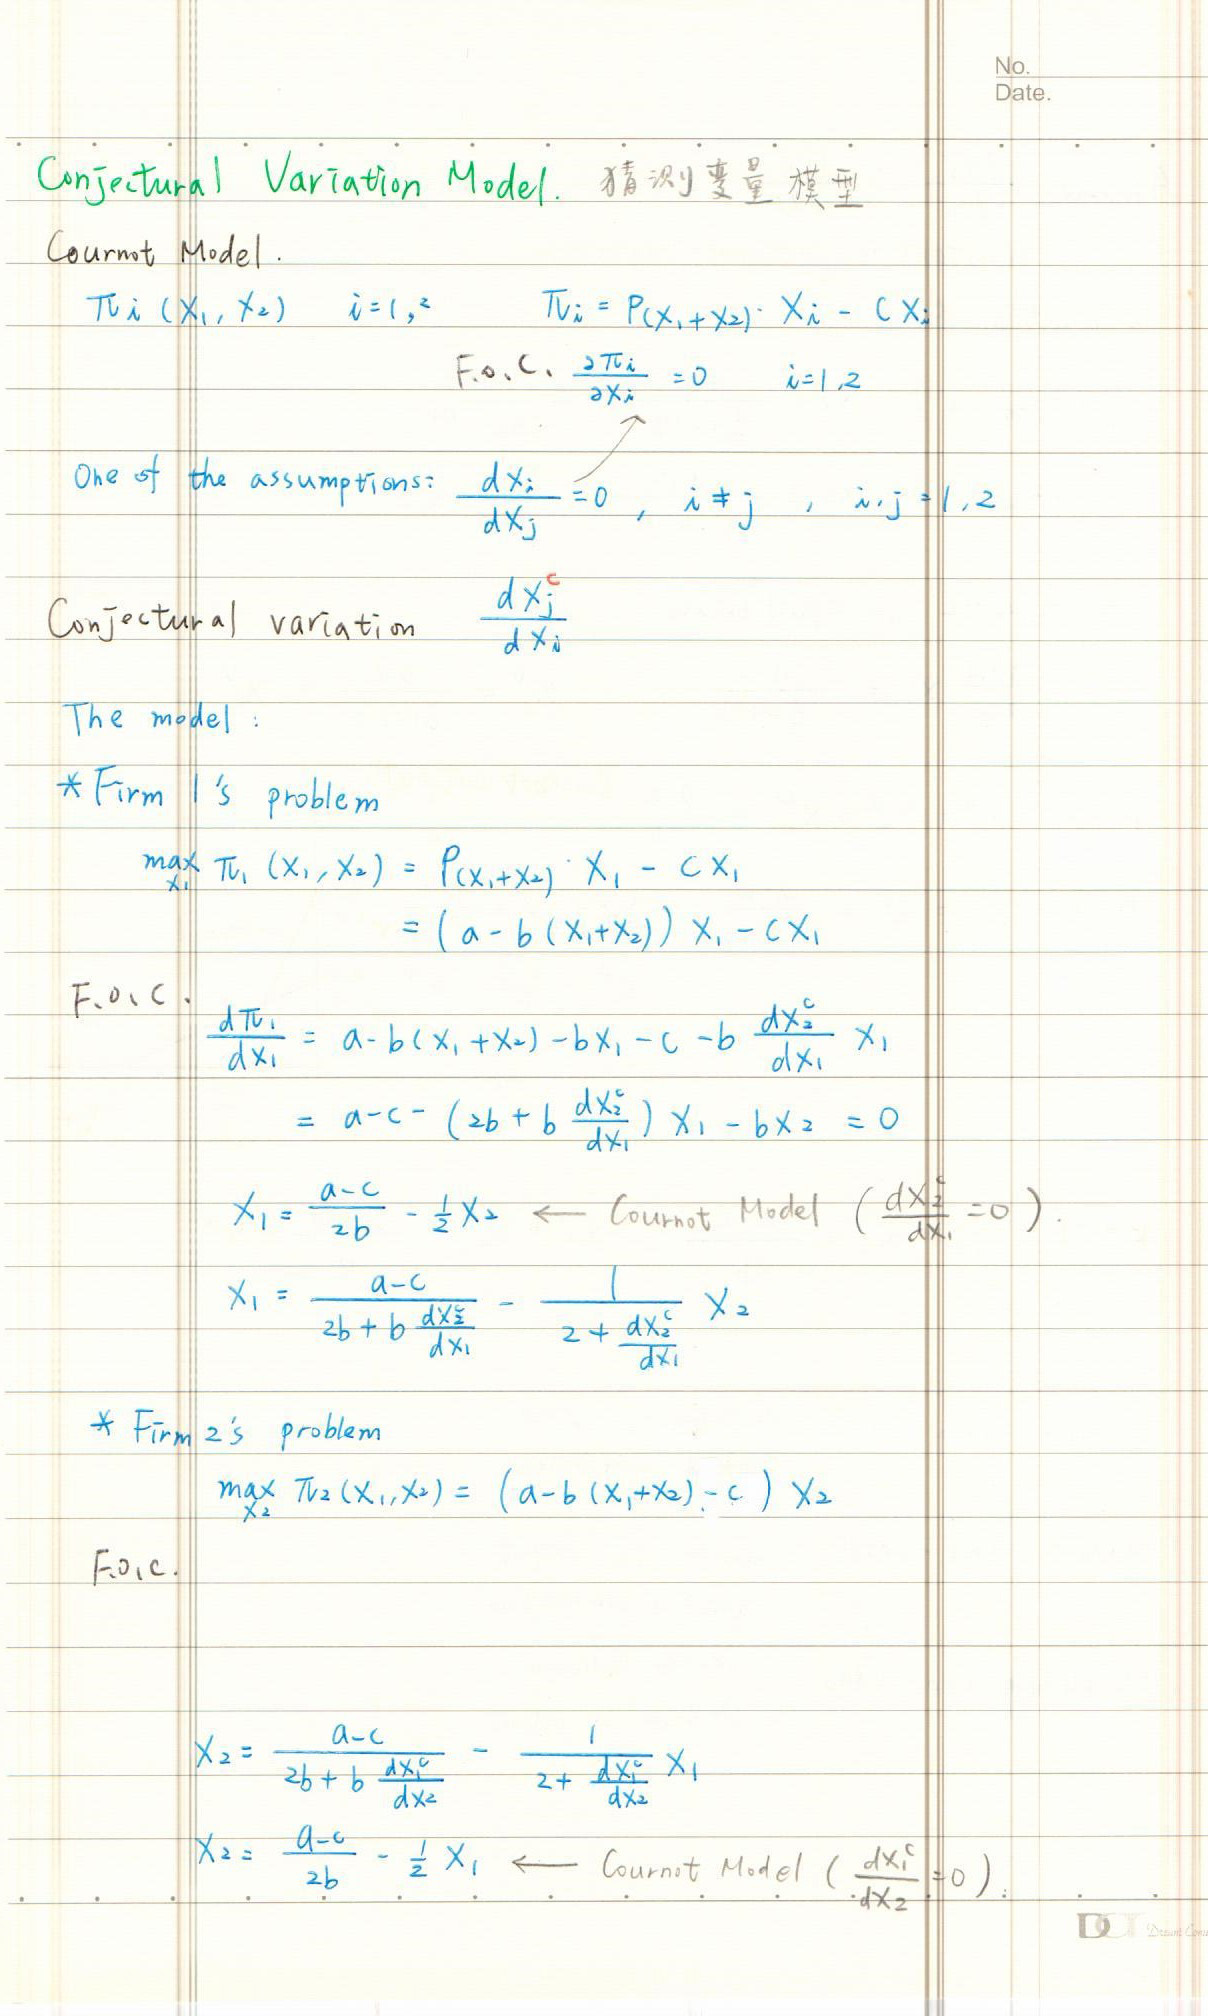 No.
Date.
Conjectural Variation Model. 猜测变量模型
Cournot Model.
πi (X₁, X₂) i=1,2 πi = P(X₁+X₂)· Xi - CXi
F.O.C. ∂πi/∂Xi =0 i=1,2
One of the assumptions: dXi/dXj =0, i≠j, i.j=1,2
Conjectural variation dXj^c/dXi
The model:
* Firm 1's problem
max X₁ π₁ (X₁, X₂) = P(X₁+X₂)· X₁ - CX₁
= (a-b(X₁+X₂)) X₁ - CX₁
F.O.C.
dπ₁/dX₁ = a-b(X₁+X₂)-bX₁-c-b dX₂^c/dX₁ X₁
= a-c-(2b+b dX₂^c/dX₁) X₁ - bX₂ = 0
X₁ = (a-c)/2b - ½X₂ ← Cournot Model (dX₂^c/dX₁ =0).
X₁ = (a-c)/(2b+b dX₂^c/dX₁) - 1/(2+dX₂^c/dX₁) X₂
* Firm 2's problem
max X₂ π₂(X₁,X₂) = (a-b(X₁+X₂)-c) X₂
F.O.C.
X₂ = (a-c)/(2b+b dX₁^c/dX₂) - 1/(2+dX₁^c/dX₂) X₁
X₂ = (a-c)/2b - ½ X₁ ← Cournot Model (dX₁^c/dX₂ =0).